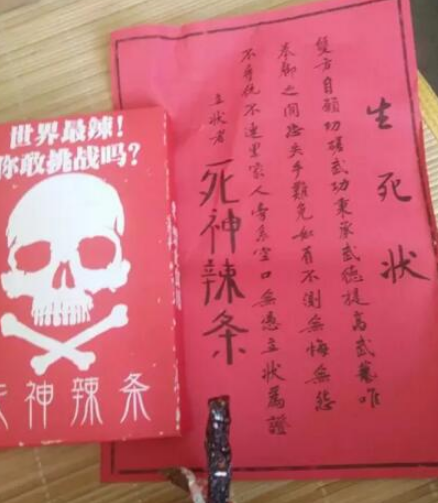 世界最辣!
你敢挑战吗?
死神辣条
生死状
雙方自願切磋武功秉承武德提高武藝咋
拳脚之间恐失手難免如有不測無悔無怨
不尋仇不連累家人旁系空口無憑立状為證
立状者 死神辣条